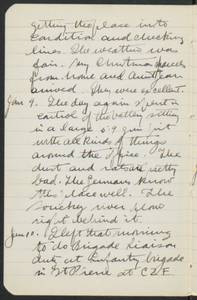 getting the place into
condition and checking
lines. The weather was
fair. My Christmas parcels
from home and Aunt
arrived. They were excellent.
Jan 9. The day again spent in
control of the battery sitting
in a large 5.9 gun pit
with all kinds of things
around the place. The
dust and rats are pretty
bad. The Germans know
this place well. The
Souchez river flows
right behind it.
Jan 10. I left that morning
to do Brigade liaison
duty at Infantry brigade
in St Pierre at